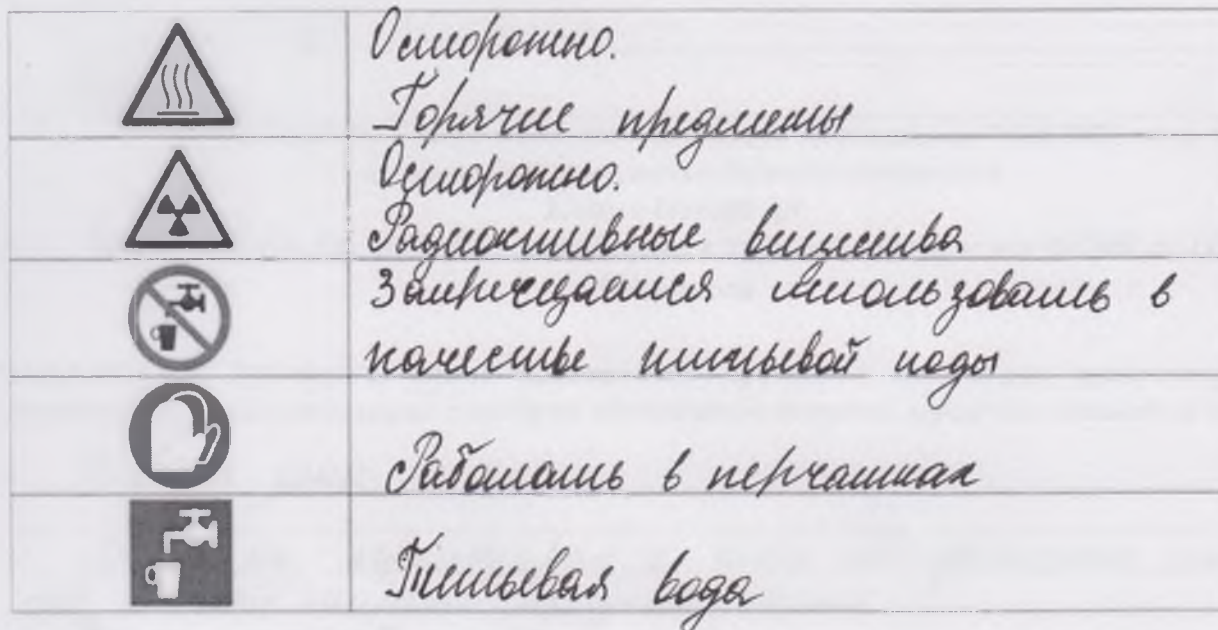 Осторожно.
Горячие предметы
Осторожно.
Радиоактивные вещества
Запрещается использовать в
качестве питьевой воды
Работать в перчатках
Питьевая вода